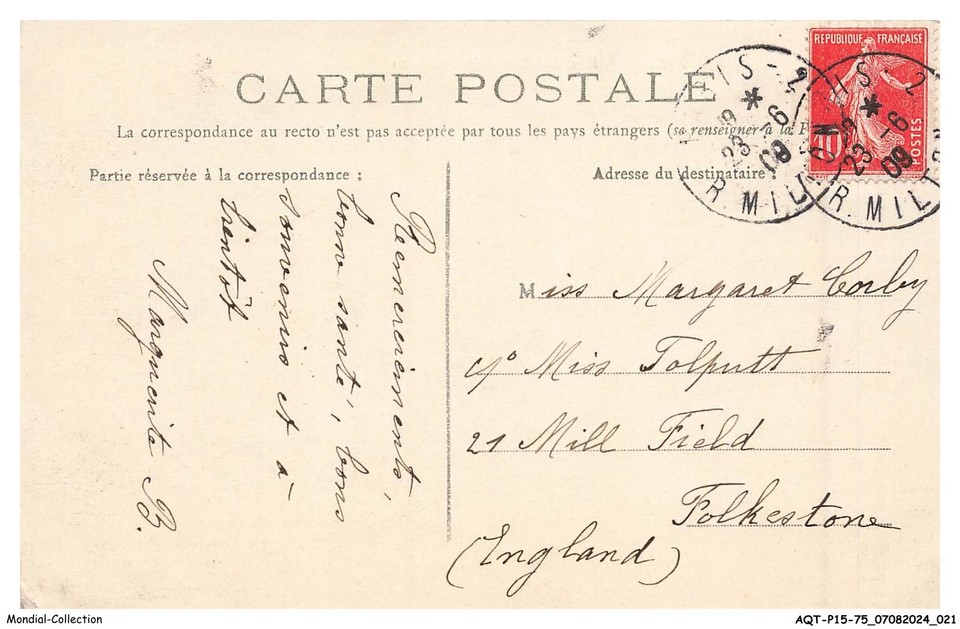 CARTE POSTALE
La correspondance au recto n'est pas acceptée par tous les pays étrangers (se renseigner à la
Partie réservée à la correspondance :
Adresse du destinataire
REPUBLIQUE FRANÇAISE
10
POSTES
IS - 2
23 - 6
09
R. MILT
IS 2
23 - 6
09
R. MILT
Remerciements,
bonne santé, bons
souvenirs et à
bientôt
Marguerite B.
Miss Margaret Corby
c/o Miss Tolputt
21 Mill Field
Folkestone
(England)
Mondial-Collection
AQT-P15-75_07082024_021